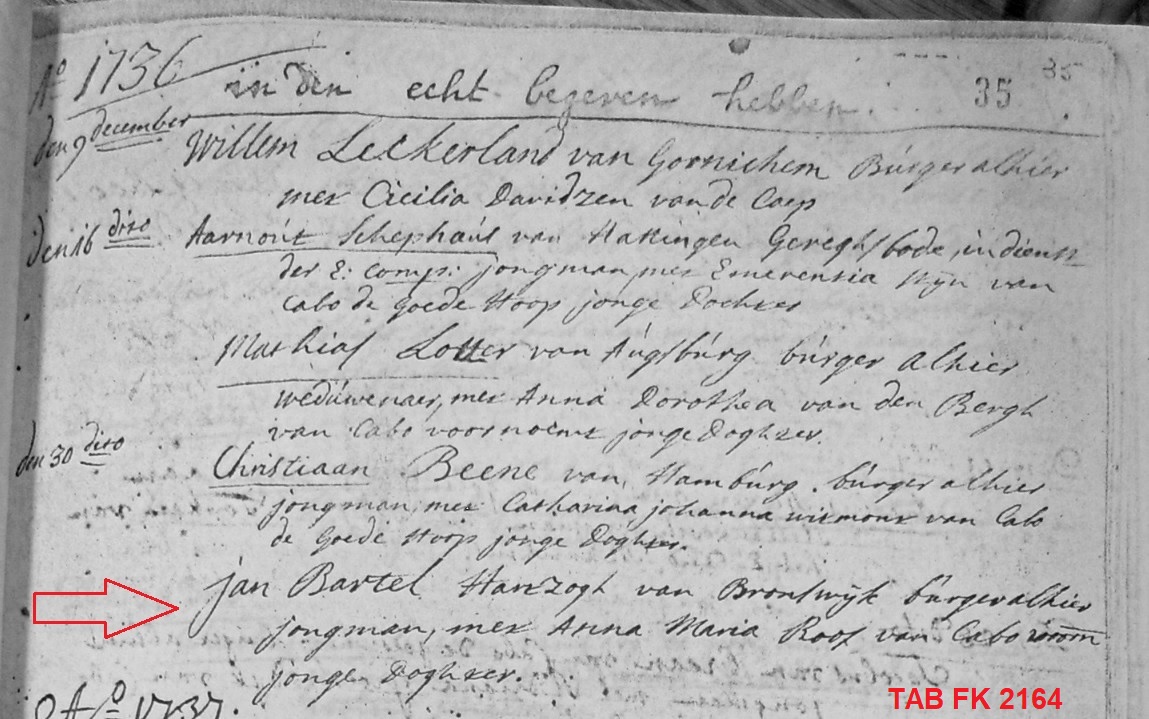 35
Aº 1736 in den echt begeven hebben. 35
den 9 december Willem Leckerland van Gornichem Búrger alhier
met Cicilia Davidzen van de Caep
den 16 dito Aarnoút Schepháús van Hattingen Geregtsbode, in dienst
der E: Comp: jongman, met Emerentia Nÿn van
Cabo de Goede Hoop jonge Dochter
Mathias Lotter van Aúgsbúrg búrger alhier
wedúwenaer, met Anna Dorothea van den Bergh
van Cabo voornoemt jonge Doghter.
den 30 dito Christiaan Beene van Hambúrg. búrger alhier
jongman, met Catharina johanna witmont van Cabo
de Goede Hoop jonge Doghter.
jan Bartel Hartzogh van Bronswÿk búrger alhier
jongman, met Anna Maria Roos van Cabo voorn
jonge Doghter.
Aº 1737.
TAB FK 2164